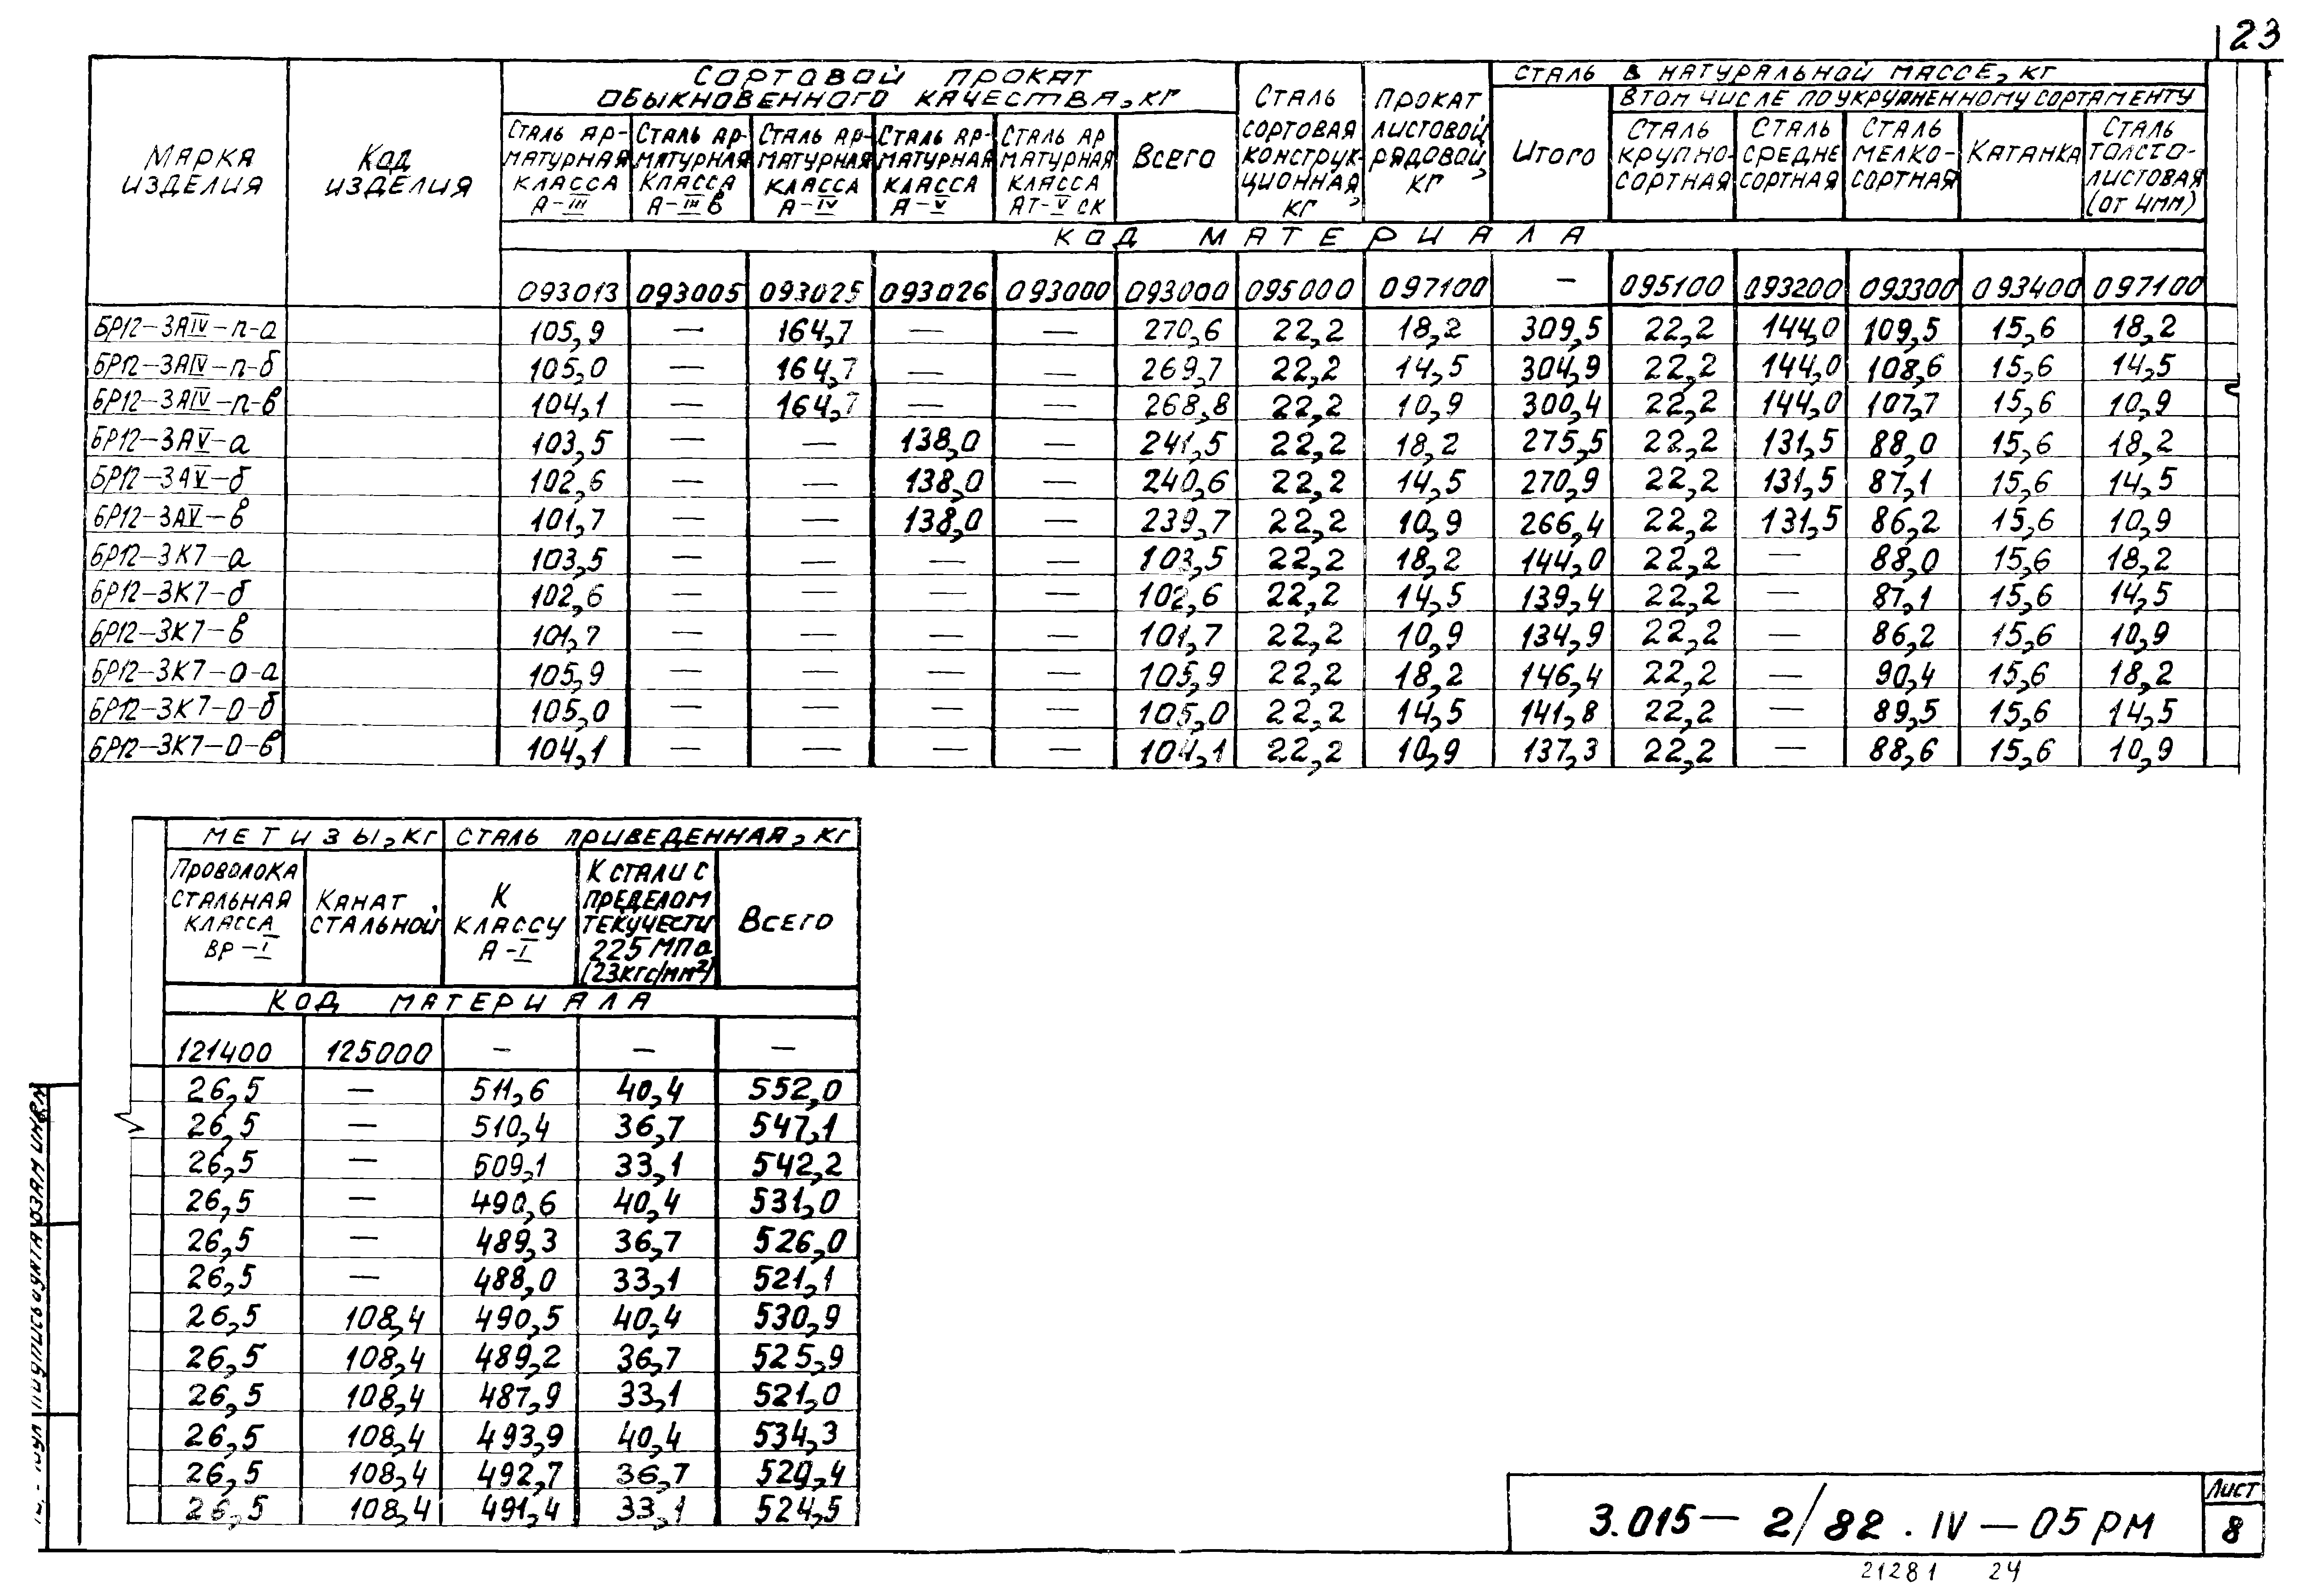 23
СОРТОВОЙ ПРОКАТ ОБЫКНОВЕННОГО КАЧЕСТВА, КГ
СТАЛЬ В НАТУРАЛЬНОЙ МАССЕ, КГ
В ТОМ ЧИСЛЕ ПО УКРУПНЕННОМУ СОРТАМЕНТУ
МАРКА ИЗДЕЛИЯ
КОД ИЗДЕЛИЯ
СТАЛЬ АР-МАТУРНАЯ КЛАССА А-III
СТАЛЬ АР-МАТУРНАЯ КЛАССА А-III В
СТАЛЬ АР-МАТУРНАЯ КЛАССА А-IV
СТАЛЬ АР-МАТУРНАЯ КЛАССА А-V
СТАЛЬ АР МАТУРНАЯ КЛАССА АТ-V СК
ВСЕГО
СТАЛЬ СОРТОВАЯ КОНСТРУК-ЦИОННАЯ, КГ
ПРОКАТ ЛИСТОВОЙ РЯДОВОЙ, КГ
ИТОГО
СТАЛЬ КРУПНО-СОРТНАЯ
СТАЛЬ СРЕДНЕ СОРТНАЯ
СТАЛЬ МЕЛКО-СОРТНАЯ
КАТАНКА
СТАЛЬ ТОЛСТО-ЛИСТОВАЯ (ОТ 4ММ)
КОД МАТЕРИАЛА
093013 093005 093025 093026 093000 093000 095000 097100 — 095100 093200 093300 093400 097100
БР12-3АIV-п-а 105,9 — 164,7 — — 270,6 22,2 18,2 309,5 22,2 144,0 109,5 15,6 18,2
БР12-3АIV-п-б 105,0 — 164,7 — — 269,7 22,2 14,5 304,9 22,2 144,0 108,6 15,6 14,5
БР12-3АIV-п-в 104,1 — 164,7 — — 268,8 22,2 10,9 300,4 22,2 144,0 107,7 15,6 10,9
БР12-3АV-а 103,5 — — 138,0 — 241,5 22,2 18,2 275,5 22,2 131,5 88,0 15,6 18,2
БР12-3АV-б 102,6 — — 138,0 — 240,6 22,2 14,5 270,9 22,2 131,5 87,1 15,6 14,5
БР12-3АV-в 101,7 — — 138,0 — 239,7 22,2 10,9 266,4 22,2 131,5 86,2 15,6 10,9
БР12-3К7-а 103,5 — — — — 103,5 22,2 18,2 144,0 22,2 — 88,0 15,6 18,2
БР12-3К7-б 102,6 — — — — 102,6 22,2 14,5 139,4 22,2 — 87,1 15,6 14,5
БР12-3К7-в 101,7 — — — — 101,7 22,2 10,9 134,9 22,2 — 86,2 15,6 10,9
БР12-3К7-О-а 105,9 — — — — 105,9 22,2 18,2 146,4 22,2 — 90,4 15,6 18,2
БР12-3К7-О-б 105,0 — — — — 105,0 22,2 14,5 141,8 22,2 — 89,5 15,6 14,5
БР12-3К7-О-в 104,1 — — — — 104,1 22,2 10,9 137,3 22,2 — 88,6 15,6 10,9
МЕТИЗЫ, КГ СТАЛЬ ПРИВЕДЕННАЯ, КГ
ПРОВОЛОКА СТАЛЬНАЯ КЛАССА ВР-I
КАНАТ СТАЛЬНОЙ
К КЛАССУ А-I
К СТАЛИ С ПРЕДЕЛОМ ТЕКУЧЕСТИ 225 МПа (23КГС/ММ²)
ВСЕГО
КОД МАТЕРИАЛА
121400 125000 — — —
26,5 — 511,6 40,4 552,0
26,5 — 510,4 36,7 547,1
26,5 — 509,1 33,1 542,2
26,5 — 490,6 40,4 531,0
26,5 — 489,3 36,7 526,0
26,5 — 488,0 33,1 521,1
26,5 108,4 490,5 40,4 530,9
26,5 108,4 489,2 36,7 525,9
26,5 108,4 487,9 33,1 521,0
26,5 108,4 493,9 40,4 534,3
26,5 108,4 492,7 36,7 529,4
26,5 108,4 491,4 33,1 524,5
3.015-2/82.IV-05РМ
ЛИСТ
8
21281 24